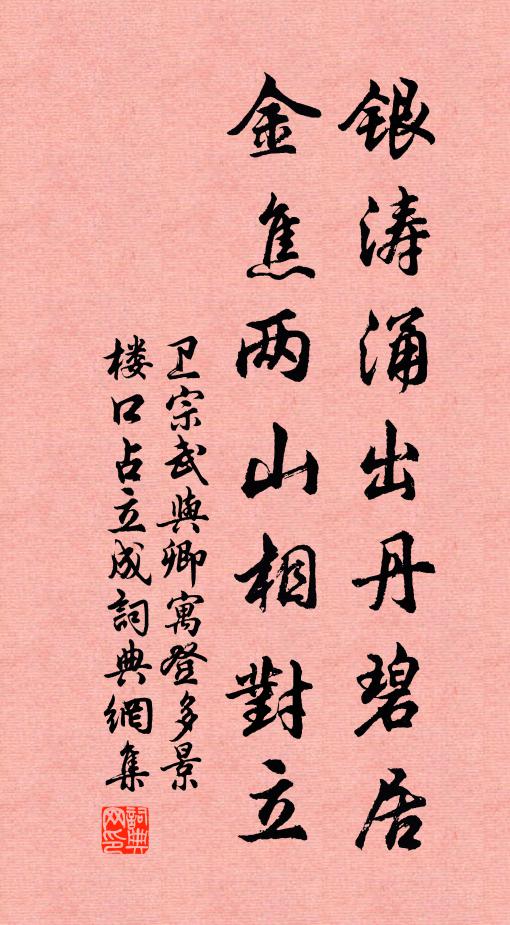 银涛涌出丹碧居
金焦两山相對立
卫宗武與卿寓登多景
楼口占立成詞典網集
詞典
网印